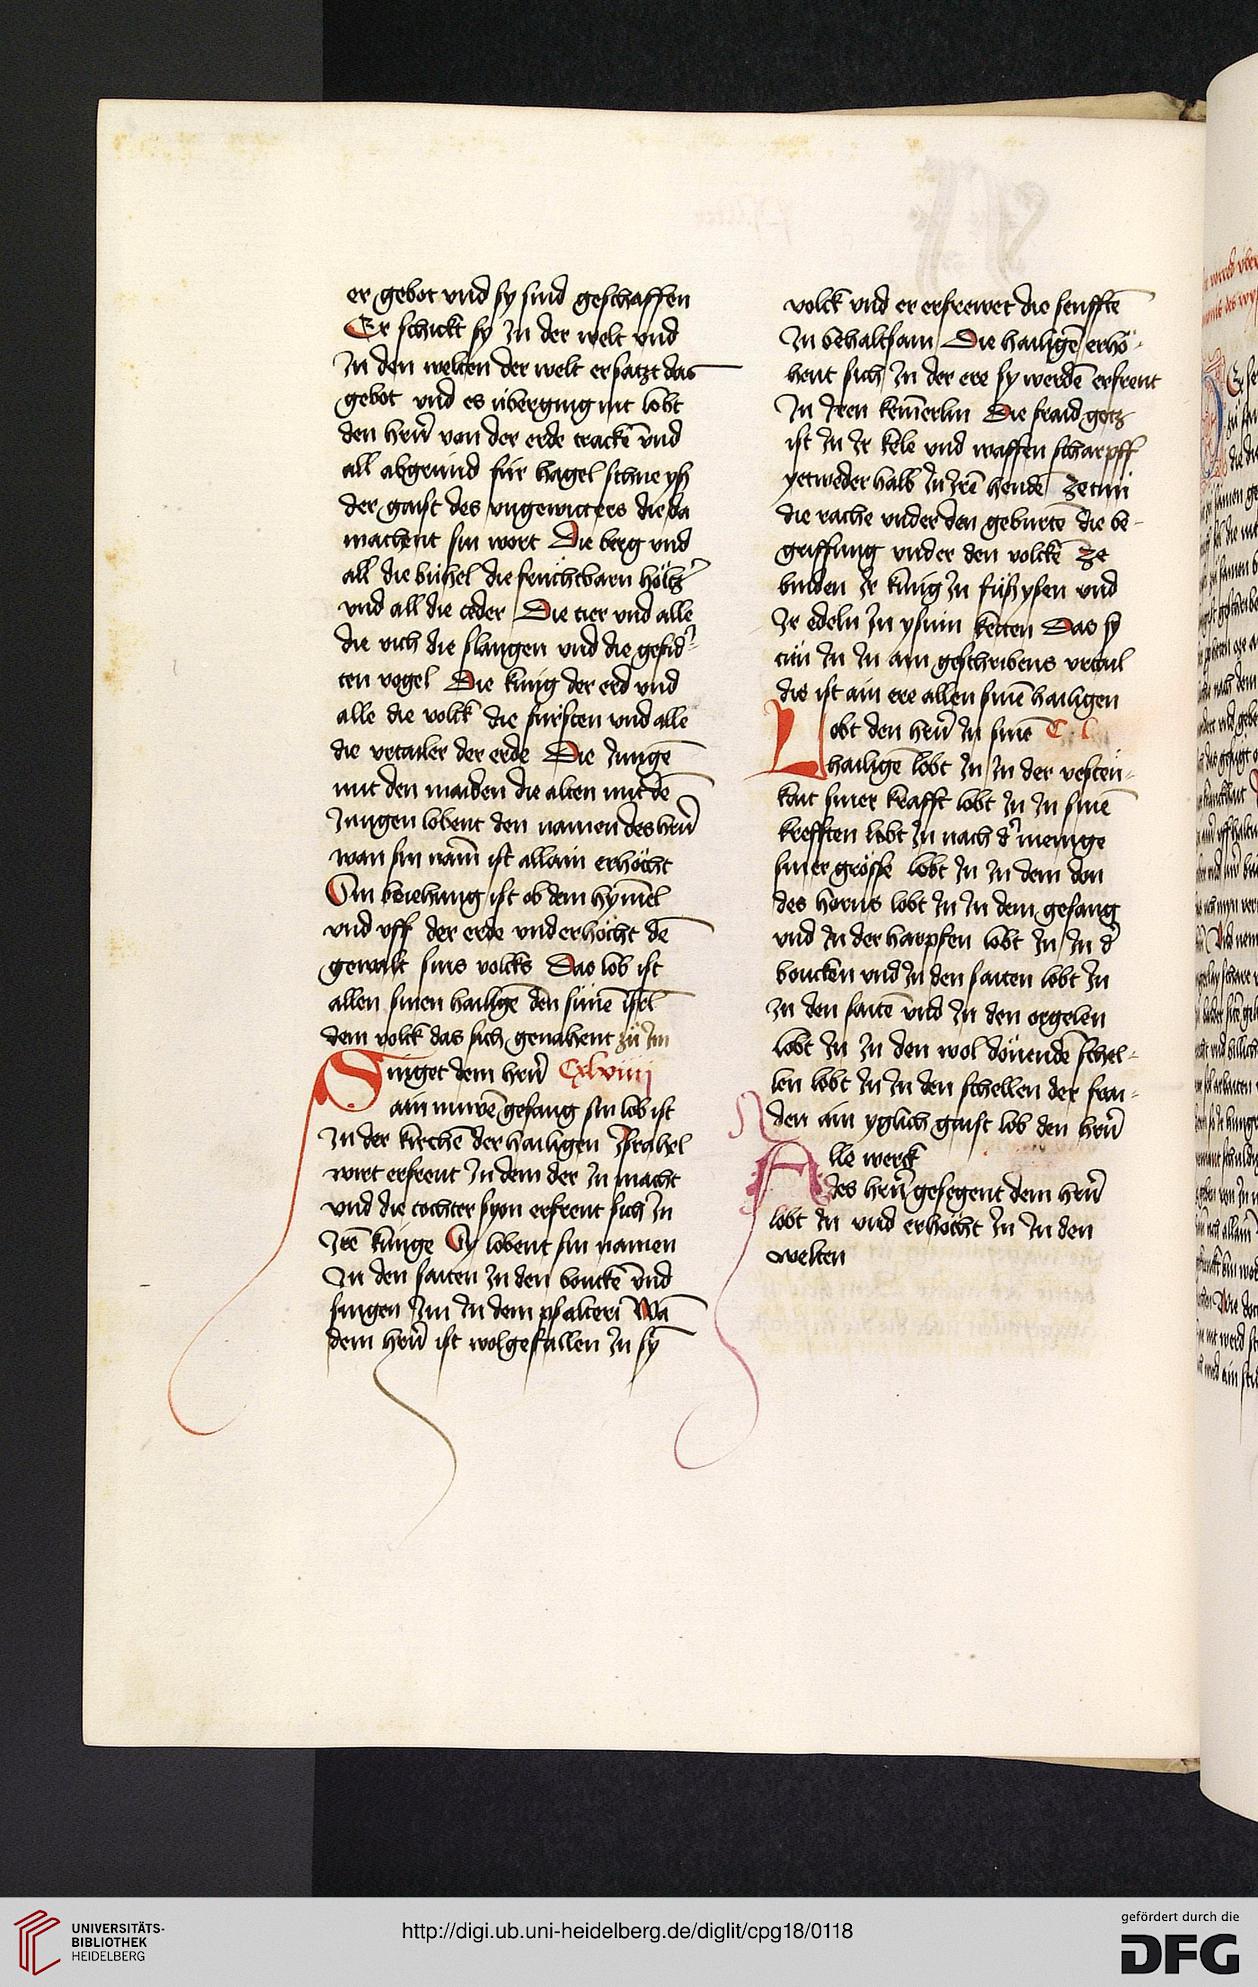 er gebot vnd sy sind geschaffen
Er schickt sy Jn der welt vnd
Jn den welten der welt er satzt das
gebot vnd es úberging nit lobt
den hrn̄ von der erde trackē vnd
all abgründ für hagel schne yß
der gaist des vngewitters die da
machent sin wort Die berg vnd
all die bühel die fruchtbarn höltzˀ
vnd all die ceder Die tier vnd alle
die vich die slangen vnd die gefidˀ-
ten vogel Die küng der erd vnd
alle die volck die fürsten vnd alle
die vrtailer der erde Die Jungē
mit den maiden die alten mit dē
Jungen lobent den namen des hrn̄
wan sin nam̄ ist allain erhöcht
Sin veiehung ist ob dem hym̄el
vnd vff der erde vnd erhöcht dē
gewalt sins volcks Das lob ist
allen sinen hailigē den sünē isrl̄
dem volck das sich genahent zü Jm
Singet dem hrn̄ Cxlviiij
ain nuwē gesang sin lob ist
Jn der kirchē der hailigen Jsrahel
wirt erfreut Jn dem der Jn macht
vnd die tochter syon erfreut sich Jn
Jrē künge Sy lobent sin namen
Jn den saiten Jn den bouckē vnd
singen Jm Jn dem psalteri Wā
dem hrn̄ ist wolgefallen Jn sȳ
volck vnd er erfrewet die senfftē
Jn behaltsam Die hailigē erhö-
hent sich Jn der ere sy werdē erfreut
Jn Jren kem̄erlin Die fraid gotz
ist Jn Jr kele vnd waffen scharpff
yetweder halb Jn Jrē hendē Ze tün
die rache vnder den geburtē die be-
griffung vnder den volckē Ze
binden Jr küng Jn füßysen vnd
Jr edeln Jn ysnin ketten Das sy
tün Jn Jn ain geschribens vrtail
dis ist ain ere allen sinē hailigen
Lobt den hrn̄ Jn sinē C l
hailigē lobt Jn Jn der vesten-
kait siner krafft lobt Jn Jn sinē
krefften lobt Jn nach dˀ menige
siner grösse lobt Jn Jn dem don
des horns lobt Jn Jn dem gesang
vnd Jn der harpfen lobt Jn Jn dˀ
boucken vnd Jn den saiten lobt Jn
Jn den saitē vnd Jn den orgelen
lobt Jn Jn den wol dönendē schel-
len lobt Jn Jn den schellen der frai-
den ain yglich gaist lob den hrn̄
Alle werck
des hrn̄ gesegent dem hrn̄
lobt Jn vnd erhöcht Jn Jn den
welten
UNIVERSITÄTS-
BIBLIOTHEK
HEIDELBERG
http://digi.ub.uni-heidelberg.de/diglit/cpg18/0118
gefördert durch die
DFG